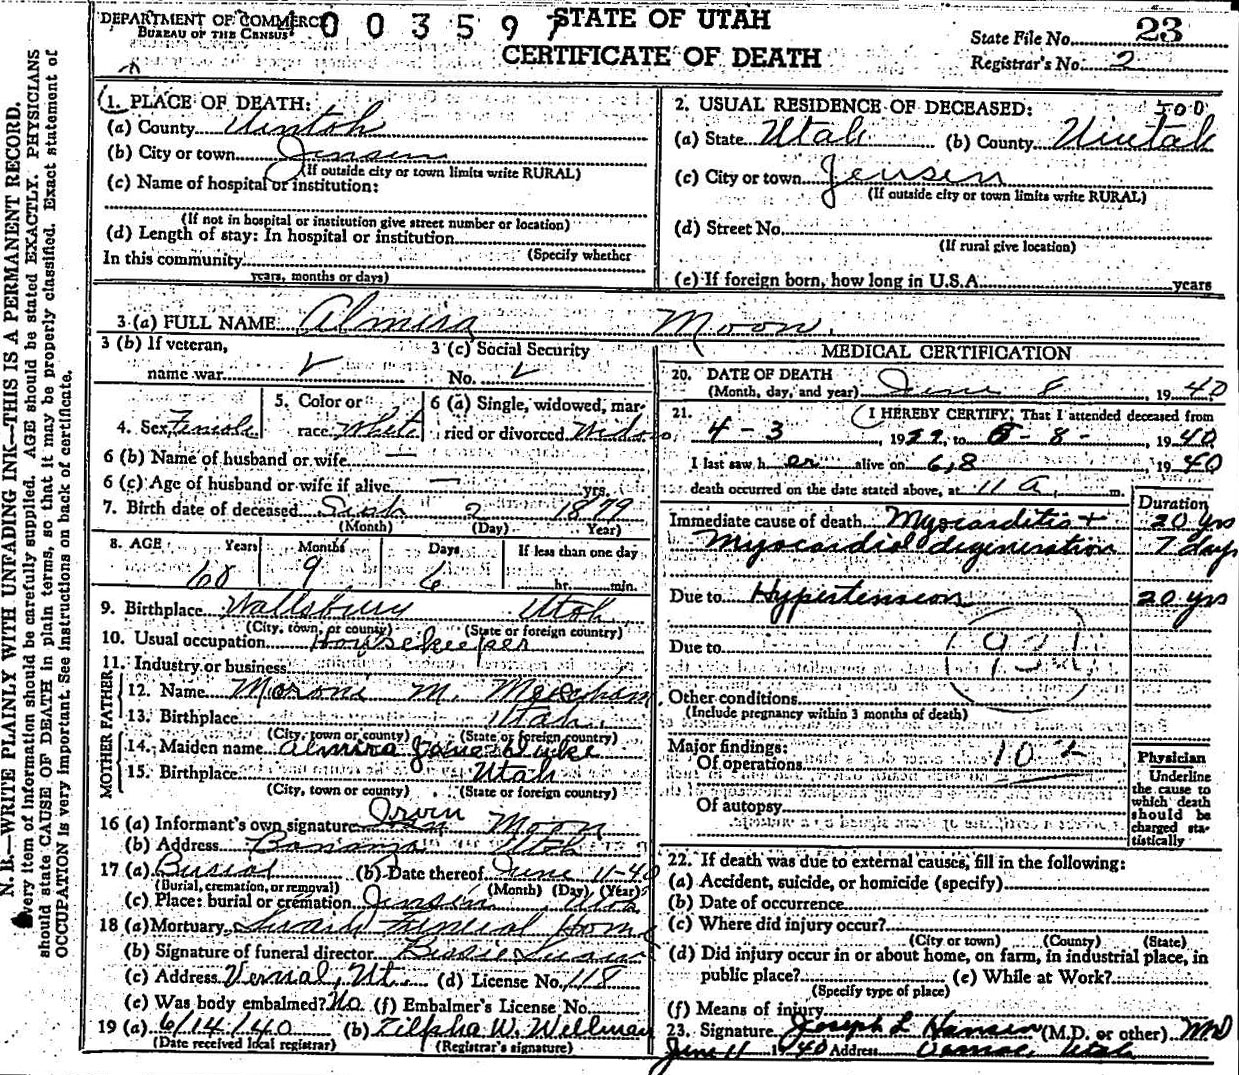 DEPARTMENT OF COMMERCE
BUREAU OF THE CENSUS
0 0 3 5 9 7
STATE OF UTAH
CERTIFICATE OF DEATH
State File No. 23
Registrar's No. 2
N. B.—WRITE PLAINLY WITH UNFADING INK—THIS IS A PERMANENT RECORD.
Every item of information should be carefully supplied. AGE should be stated EXACTLY. PHYSICIANS
should state CAUSE OF DEATH in plain terms, so that it may be properly classified. Exact statement of
OCCUPATION is very important. See instructions on back of certificate.
1. PLACE OF DEATH:
(a) County Uintah
(b) City or town Jensen
(If outside city or town limits write RURAL)
(c) Name of hospital or institution:
(If not in hospital or institution give street number or location)
(d) Length of stay: In hospital or institution
(Specify whether
In this community
years, months or days)
2. USUAL RESIDENCE OF DECEASED: 500
(a) State Utah (b) County Uintah
(c) City or town Jensen
(If outside city or town limits write RURAL)
(d) Street No.
(If rural give location)
(e) If foreign born, how long in U.S.A. years
3 (a) FULL NAME Almira Moon
3 (b) If veteran,
name war
3 (c) Social Security
No.
4. Sex Female
5. Color or
race White
6 (a) Single, widowed, mar-
ried or divorced Widow
6 (b) Name of husband or wife —
6 (c) Age of husband or wife if alive — yrs.
7. Birth date of deceased Sept 2 1879
(Month) (Day) Year)
8. AGE Years Months Days If less than one day
60 9 6 hr. min.
9. Birthplace Wallsbury Utah
(City, town, or county) (State or foreign country)
10. Usual occupation Housekeeper
11. Industry or business
FATHER
12. Name Moroni M.
13. Birthplace Utah
(City, town or county) (State or foreign country)
MOTHER
14. Maiden name Almira Jane Duke
15. Birthplace Utah
(City, town or county) (State or foreign country)
16 (a) Informant's own signature Orvin Moon
(b) Address Bonanza Utah
17 (a) Burial (b) Date thereof June 11-40
(Burial, cremation, or removal) (Month) (Day) (Year)
(c) Place: burial or cremation Jensen Utah
18 (a) Mortuary Swain Funeral Home
(b) Signature of funeral director
(c) Address Vernal, Ut. (d) License No. 118
(e) Was body embalmed? No (f) Embalmer's License No.
19 (a) 6/14/40 (b) Zilpha W. Wellman
(Date received local registrar) (Registrar's signature)
MEDICAL CERTIFICATION
20. DATE OF DEATH
(Month, day, and year) June 8, 1940
21. I HEREBY CERTIFY, That I attended deceased from
4 - 3, 19 to 6 - 8 -, 1940
I last saw her alive on 6,8, 1940
death occurred on the date stated above, at 11 A. m.
Duration
Immediate cause of death Myocarditis + 20 yrs
Myocardial degeneration 7 days
Due to Hypertension 20 yrs
Due to
93d
Other conditions
(Include pregnancy within 3 months of death)
Major findings:
Of operations 102
Of autopsy
Physician
Underline
the cause to
which death
should be
charged sta-
tistically
22. If death was due to external causes, fill in the following:
(a) Accident, suicide, or homicide (specify)
(b) Date of occurrence
(c) Where did injury occur?
(City or town) (County) (State)
(d) Did injury occur in or about home, on farm, in industrial place, in
public place? (e) While at Work?
(Specify type of place)
(f) Means of injury
23. Signature Joseph L Hansen (M.D. or other) MD
June 11 1940 Address Vernal, Utah